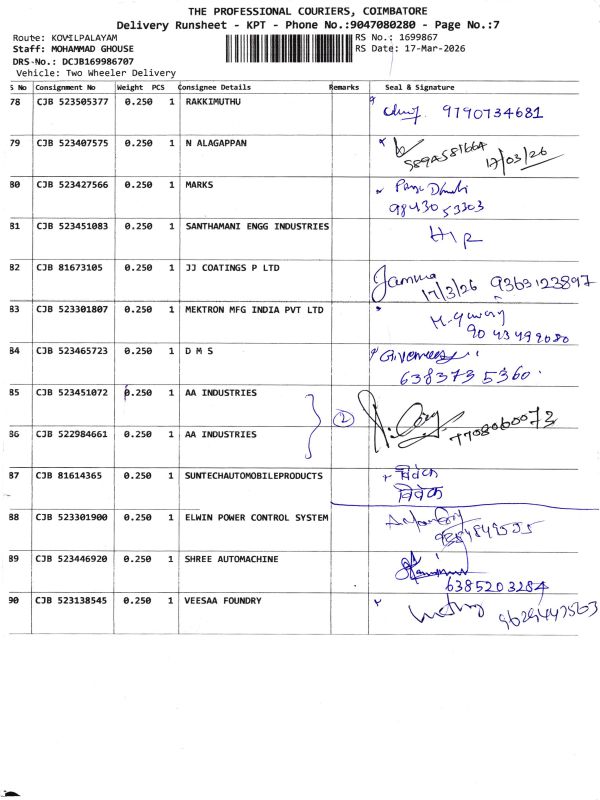 THE PROFESSIONAL COURIERS, COIMBATORE
Delivery Runsheet - KPT - Phone No.:9047080280 - Page No.:7
Route: KOVILPALAYAM
RS No.: 1699867
Staff: MOHAMMAD GHOUSE
RS Date: 17-Mar-2026
DRS-No.: DCJB169986707
Vehicle: Two Wheeler Delivery
S No Consignment No Weight PCS Consignee Details Remarks Seal & Signature
78 CJB 523505377 0.250 1 RAKKIMUTHU 9790734681
79 CJB 523407575 0.250 1 N ALAGAPPAN 17/03/26
80 CJB 523427566 0.250 1 MARKS
98430 53303
81 CJB 523451083 0.250 1 SANTHAMANI ENGG INDUSTRIES
82 CJB 81673105 0.250 1 JJ COATINGS P LTD Jamuna
17/3/26 9363123897
83 CJB 523301807 0.250 1 MEKTRON MFG INDIA PVT LTD
90 43499080
84 CJB 523465723 0.250 1 D M S
638373 5360
85 CJB 523451072 0.250 1 AA INDUSTRIES
2 7708060073
86 CJB 522984661 0.250 1 AA INDUSTRIES
87 CJB 81614365 0.250 1 SUNTECHAUTOMOBILEPRODUCTS विवेक
विवेक
88 CJB 523301900 0.250 1 ELWIN POWER CONTROL SYSTEM
89 CJB 523446920 0.250 1 SHREE AUTOMACHINE
6385203284
90 CJB 523138545 0.250 1 VEESAA FOUNDRY